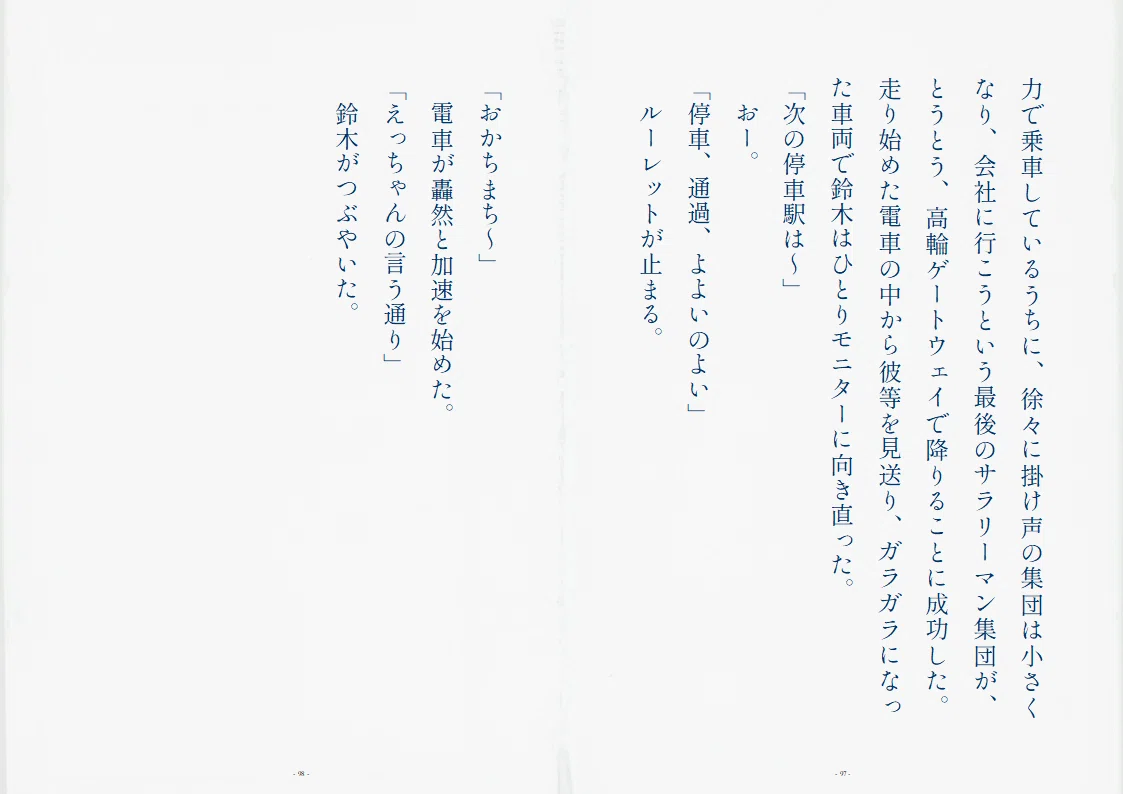 力で乗車しているうちに、徐々に掛け声の集団は小さく
なり、会社に行こうという最後のサラリーマン集団が、
とうとう、高輪ゲートウェイで降りることに成功した。
走り始めた電車の中から彼等を見送り、ガラガラになっ
た車両で鈴木はひとりモニターに向き直った。
「次の停車駅は〜」
おー。
「停車、通過、よよいのよい」
ルーレットが止まる。
- 97 -
「おかちまち〜」
電車が轟然と加速を始めた。
「えっちゃんの言う通り」
鈴木がつぶやいた。
- 98 -